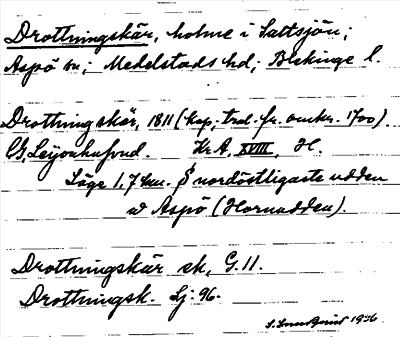 Drottningskär, holme i Saltsjön;
Aspö sn; Medelstads hd; Blekinge l.
Drottningskär, 1811 (kop; trol. fr. omkr. 1700)
CG, Leijonhufvud. Kr A, XVIII, H.
Läge 1,7 km. S nordöstligaste udden
av Aspö (Hornudden).
Drottningskär ek, G.11.
Drottningsk. Lj: 96.
1926